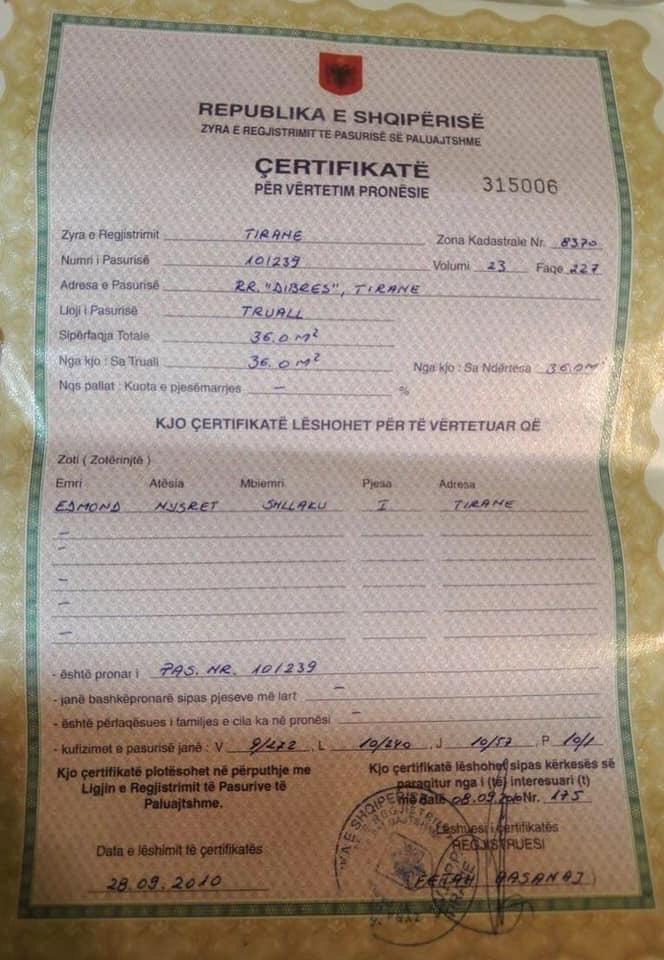 REPUBLIKA E SHQIPËRISË
ZYRA E REGJISTRIMIT TË PASURISË SË PALUAJTSHME
ÇERTIFIKATË
PËR VËRTETIM PRONËSIE 315006
Zyra e Regjistrimit TIRANE Zona Kadastrale Nr. 8370
Numri i Pasurisë 10/239 Volumi 23 Faqe 227
Adresa e Pasurisë RR. "DIBRES", TIRANE
Lloji i Pasurisë TRUALL
Sipërfaqja Totale 36.0 M²
Nga kjo : Sa Trualli 36.0 M² Nga kjo : Sa Ndërtesa 36.0 M²
Nqs pallat : Kuota e pjesëmarrjes — %
KJO ÇERTIFIKATË LËSHOHET PËR TË VËRTETUAR QË
Zoti ( Zotërinjtë )
Emri Atësia Mbiemri Pjesa Adresa
EDMOND NYSRET SHLLAKU I TIRANE
—
—
—
—
—
- është pronar i PAS. NR. 10/239
- janë bashkëpronarë sipas pjesëve më lart —
- është përfaqësues i familjes e cila ka në pronësi —
- kufizimet e pasurisë janë : V 9/272, L 10/240, J 10/57, P 10/1
Kjo çertifikatë plotësohet në përputhje me
Ligjin e Regjistrimit të Pasurive të
Paluajtshme.
Kjo çertifikatë lëshohet sipas kërkesës së
paraqitur nga i (të) interesuari (t)
më datë 08.09.2010 Nr. 175
Lëshuesi i çertifikatës
REGJISTRUESI
Data e lëshimit të çertifikatës
28.09.2010